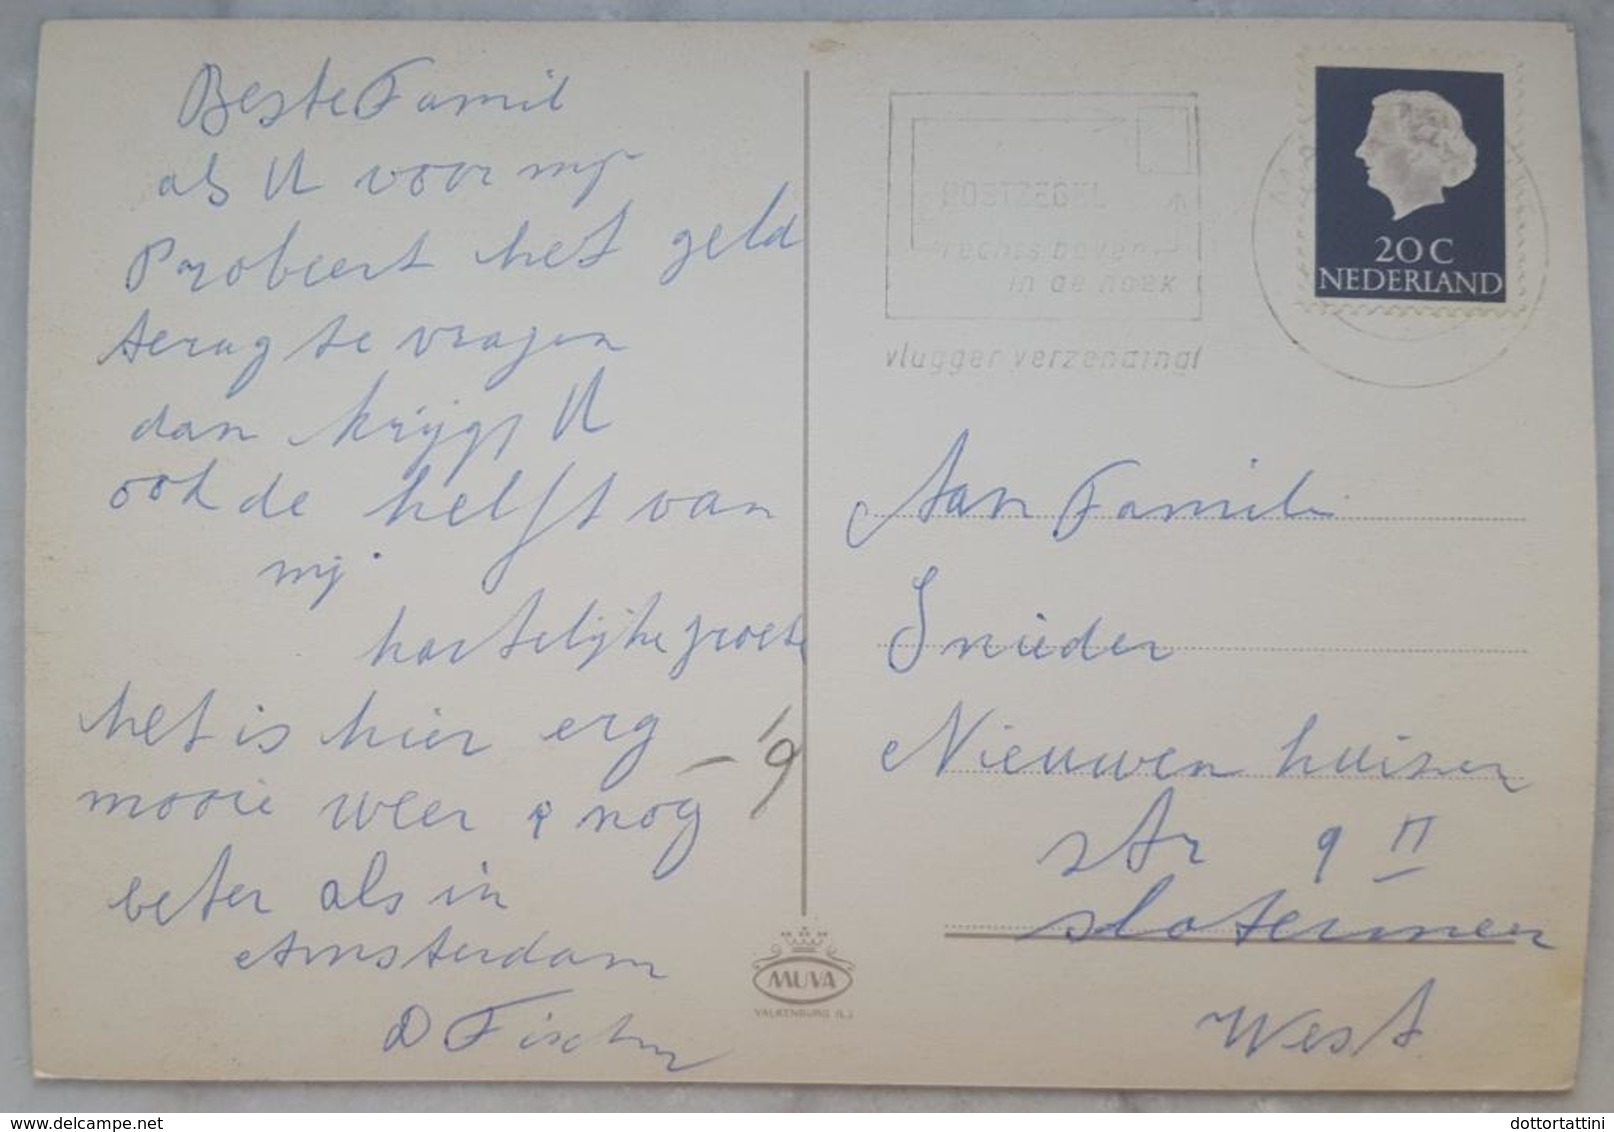 Beste Famil
als U voor mij
Probeert het geld
terug te vragen
dan krijgt U
ook de helft van
mij.
hartelijke groete
het is hier erg
mooie weer & nog
beter als in
Amsterdam
D Fischer
- 19
POSTZEGEL
rechts boven
in de hoek
vlugger verzending!
20 C
NEDERLAND
Aan Famili
Snieder
Nieuwenhuisen
str 9 II
slotermeer
West
MUVA
VALKENBURG (L.)
dottortattini